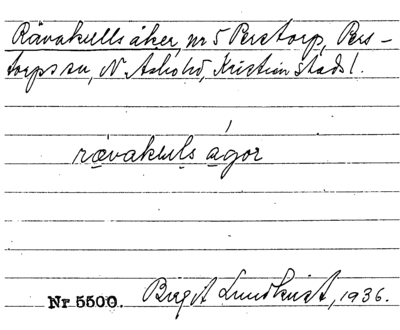 Rävakulls åker, nr 5 Perstorp, Pers-
torps sn, N. Åsbo hd, Kristianstads l.
rävakuls ågor
Nr 5500. Birgit Lundkvist, 1936.